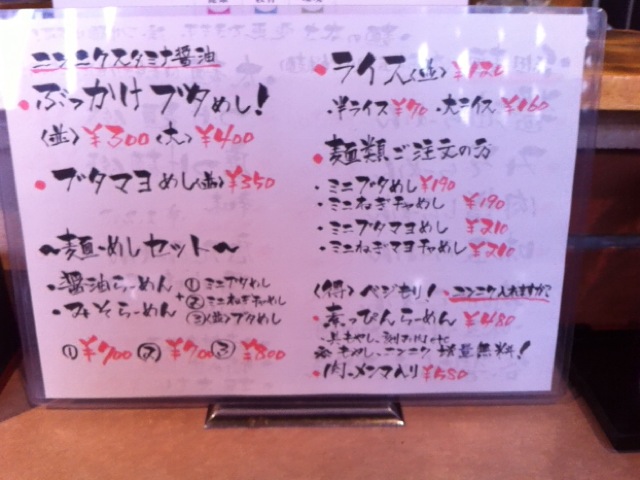 ニンニクスタミナ醤油
・ぶっかけブタめし!
(並)¥300(大)¥400
・ブタマヨめし(並)¥350
〜麺・めしセット〜
・醤油らーめん
・みそらーめん
+
①ミニブタめし
②ミニねぎチャめし
③(並)ブタめし
①¥700 ②¥700 ③¥800
・ライス(並)¥120
・半ライス¥90 ・大ライス¥160
・麺類ご注文の方
・ミニブタめし¥190
・ミニねぎチャめし ¥190
・ミニブタマヨめし ¥210
・ミニねぎマヨチャめし ¥210
(得)ベジもり! ・ニンニク入れますか?
・素っぴんらーめん ¥480
もやし、ニンニク 増量無料!
・肉、メンマ入り¥580